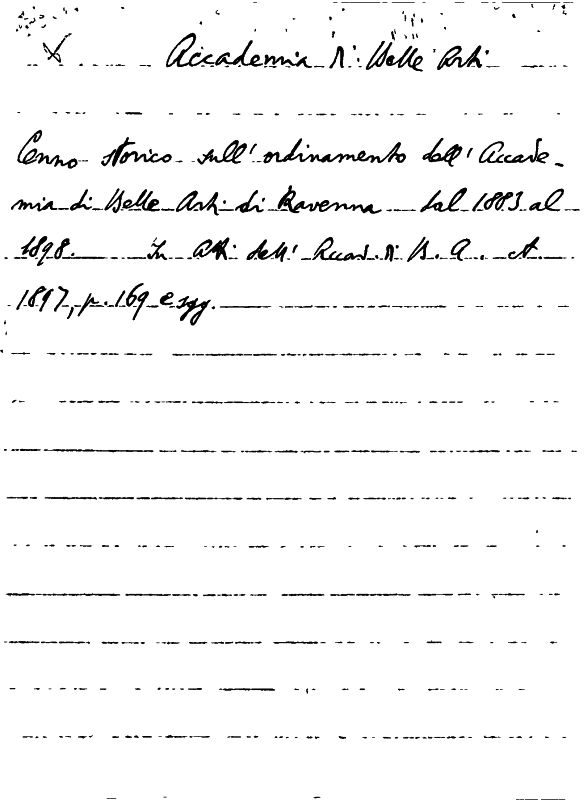 Accademia di Belle Arti
Cenno storico sull'ordinamento dell'Accade-
mia di Belle Arti di Ravenna dal 1883 al
1898. In Atti dell'Accad. di B. A. A.
1897, p. 169 e sgg.